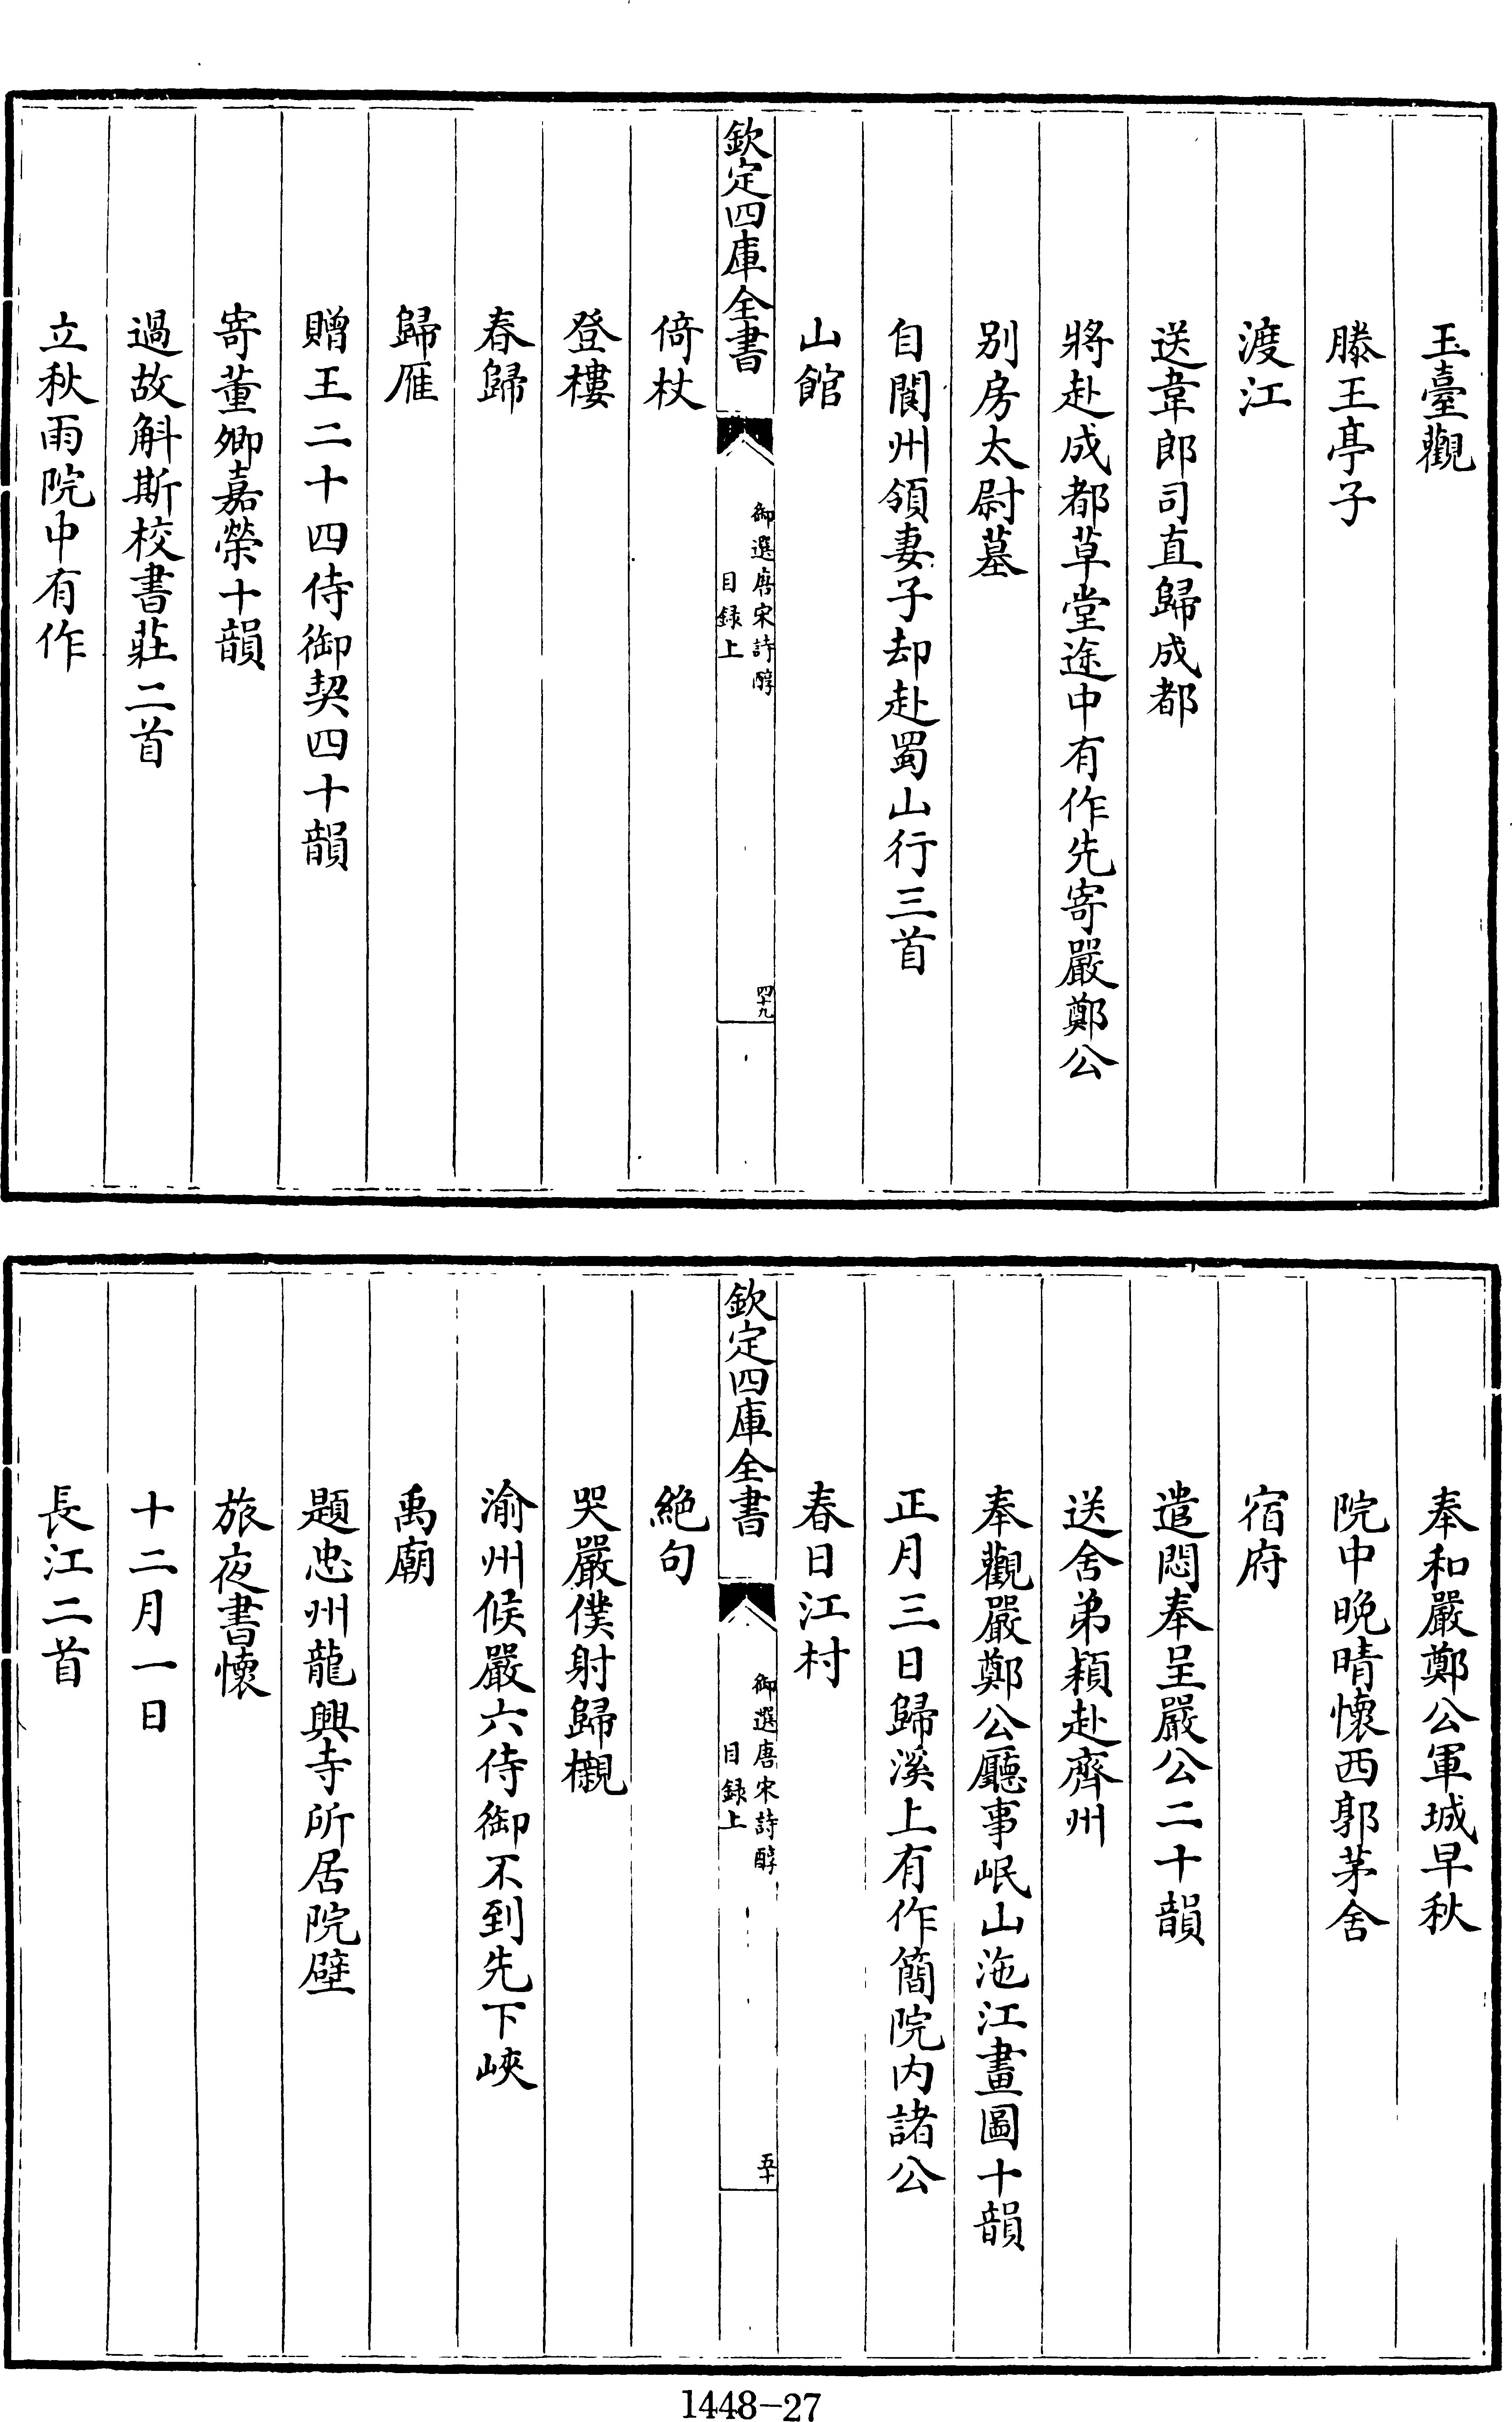 玉臺觀
滕王亭子
渡江
送韋郎司直歸成都
將赴成都草堂途中有作先寄嚴鄭公
别房太尉墓
自閬州領妻子却赴蜀山行三首
山館
欽定四庫全書
御選唐宋詩醇
目録上
四十九
倚杖
登樓
春歸
歸雁
贈王二十四侍御契四十韻
寄董卿嘉榮十韻
過故斛斯校書莊二首
立秋雨院中有作
奉和嚴鄭公軍城早秋
院中晚晴懷西郭茅舍
宿府
遣悶奉呈嚴公二十韻
送舍弟穎赴齊州
奉觀嚴鄭公廳事岷山沲江畫圖十韻
正月三日歸溪上有作簡院内諸公
春日江村
欽定四庫全書
御選唐宋詩醇
目録上
五十
絶句
哭嚴僕射歸櫬
渝州候嚴六侍御不到先下峽
禹廟
題忠州龍興寺所居院壁
旅夜書懷
十二月一日
長江二首
1448-27